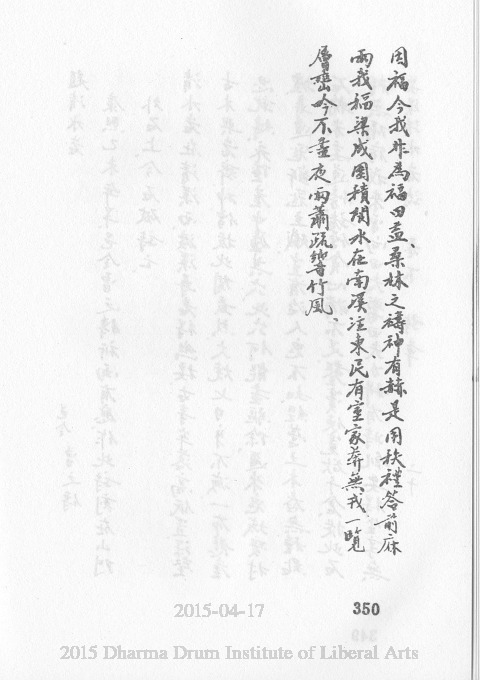 因福今我非為福田益、桑林之禱神有赫是用秩禮答前庥
兩我福梁成圍積閱水在南溪注東、民有室家莽無戎一覽
層巒吟不盡夜雨蕭疏響竹風、
350
2015-04-17
2015 Dharma Drum Institute of Liberal Arts